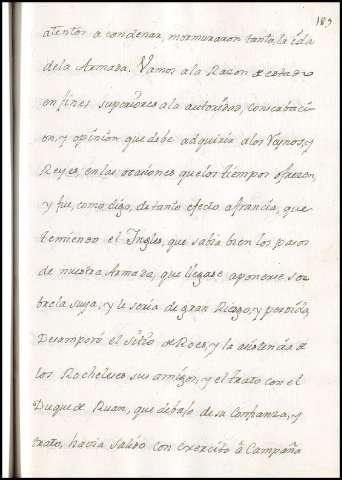 189
atentos a condenar, mormuraron tanto, la ida
dela Armada. Vamos ala Razon de estado
en fines superiores ala autoridad, conserbaci-
on, y opinion que debe adquirir alos Reynos, y
Reyes, en las ocasiones que los tiempos ofrezen,
y fue, como digo, de tanto efecto afrancia, que
temiendo el Ingles, que sabia bien los pasos
de nuestra Armada, que llegase aponerse so-
brela suya, y le seria de gran Riesgo, y perdida
Desamparó el Sitio de Roes, y la asistencia de
los Rocheleses sus amigos, y el trato con el
Duque de Ruan, que debajo de su Confianza, y
trato, havia salido con exercito á Campaña